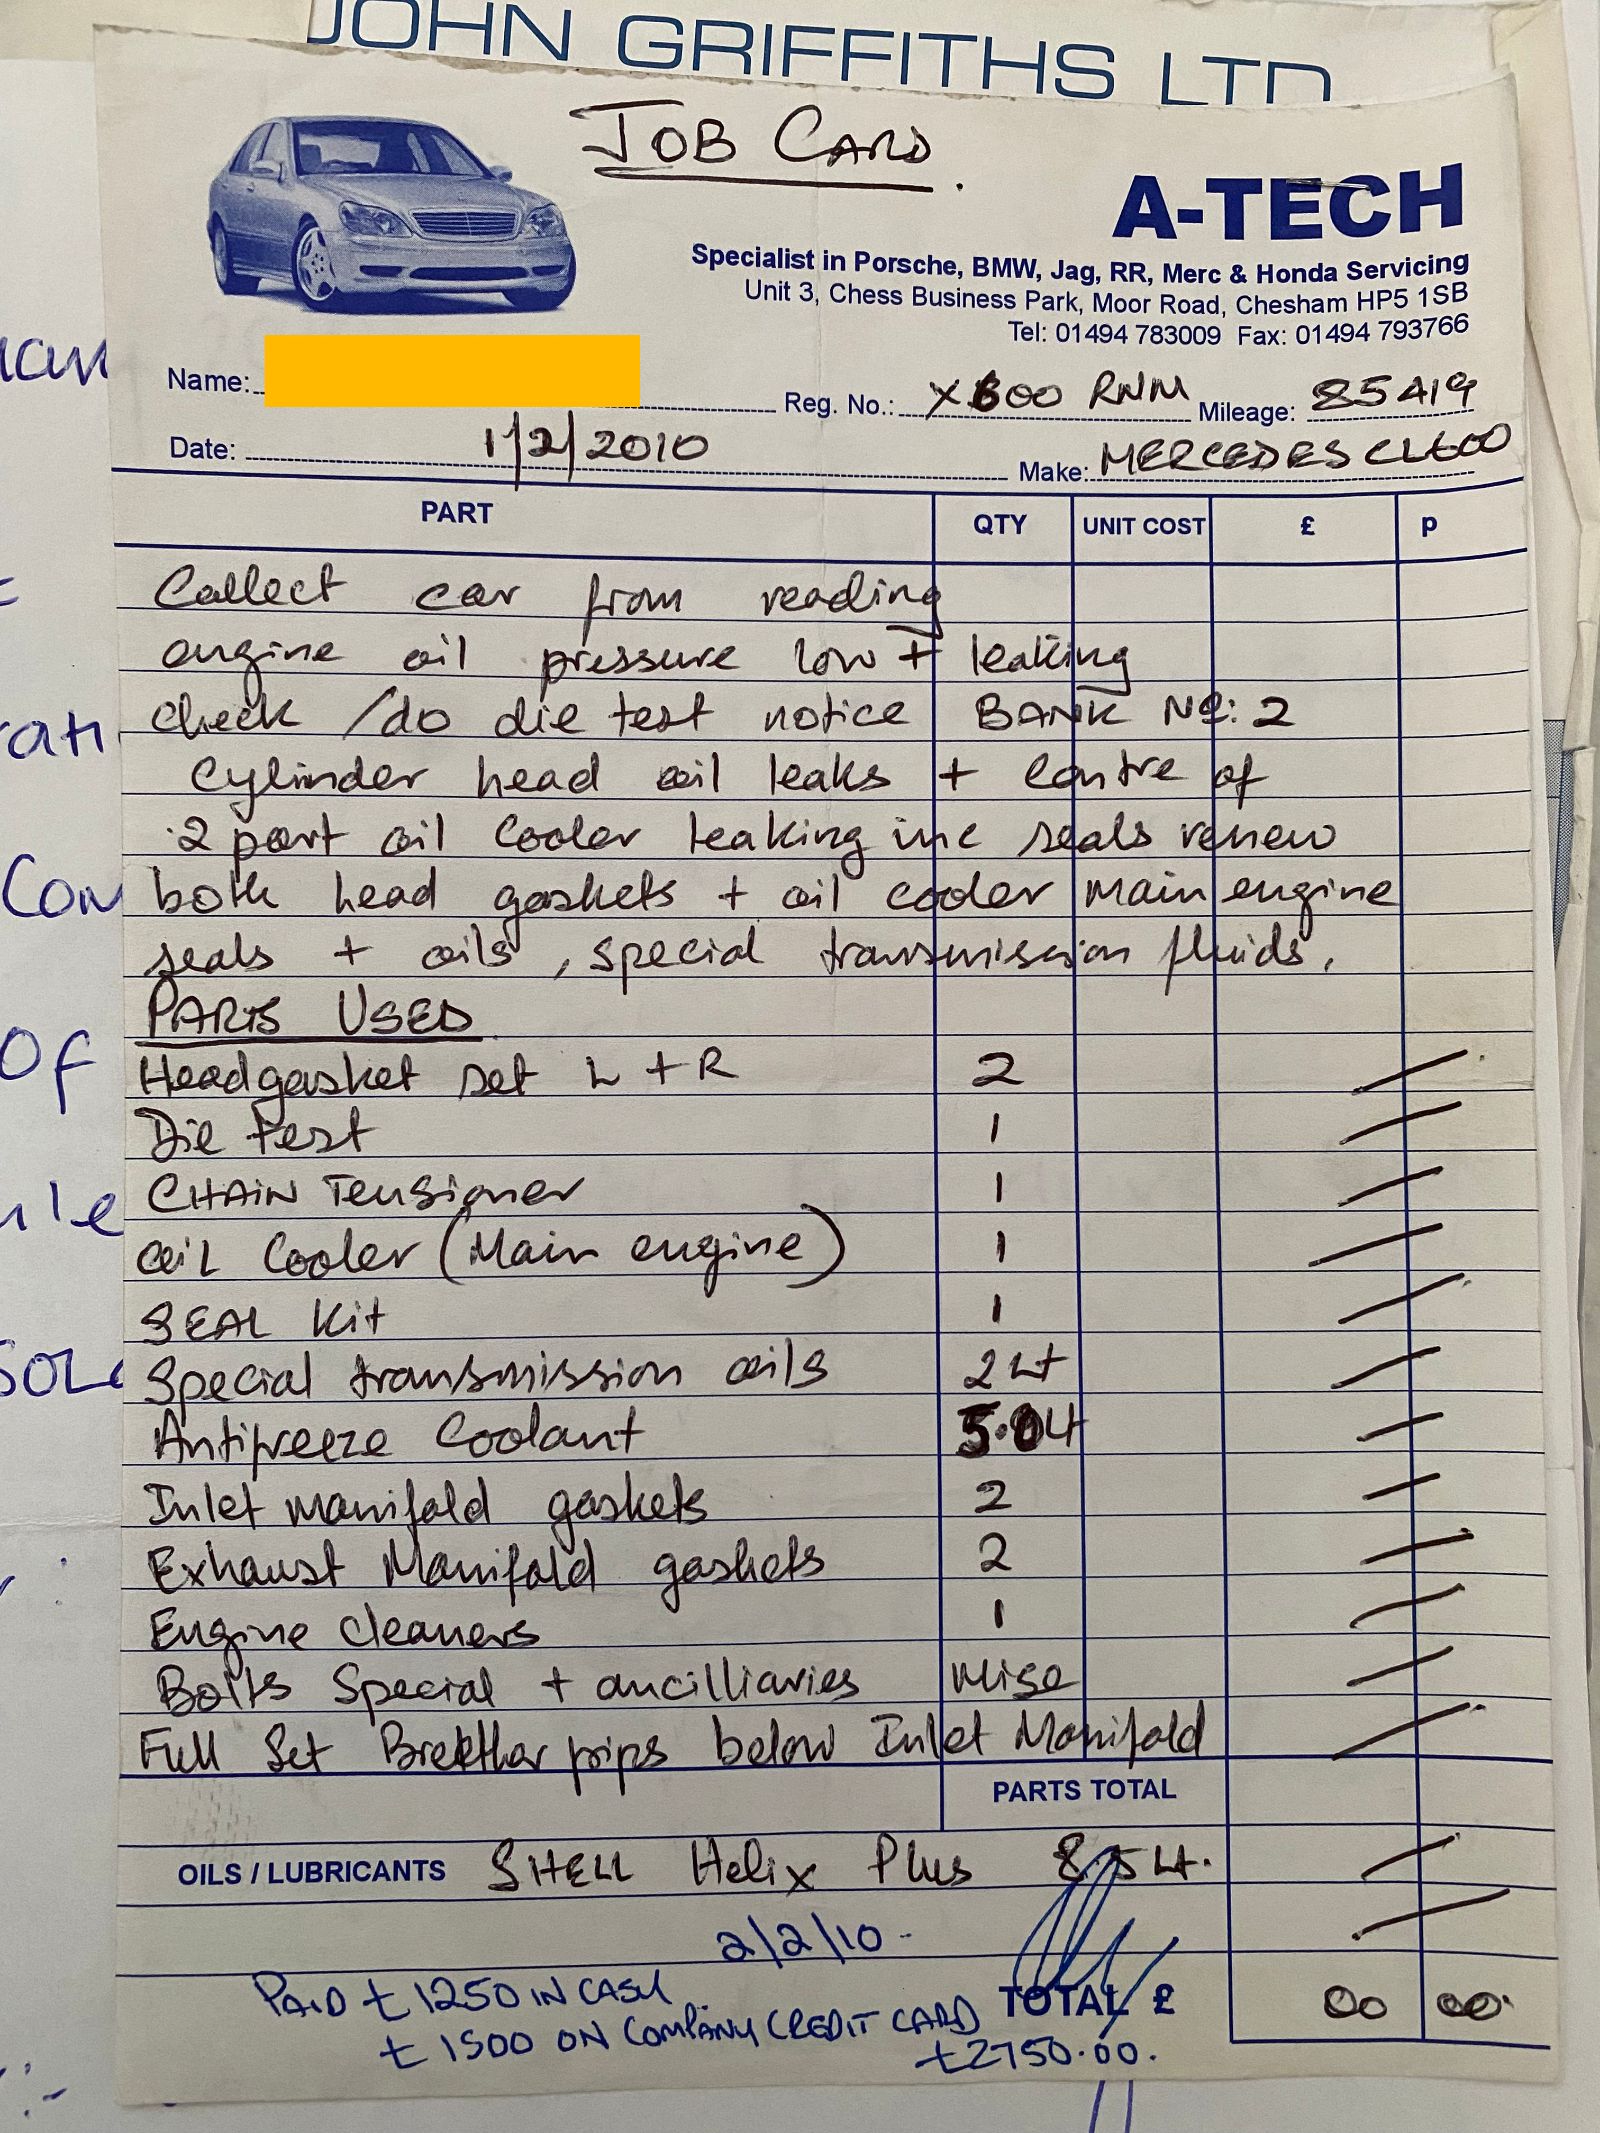 JOHN GRIFFITHS LTD
JOB CARD.
A-TECH
Specialist in Porsche, BMW, Jag, RR, Merc & Honda Servicing
Unit 3, Chess Business Park, Moor Road, Chesham HP5 1SB
Tel: 01494 783009 Fax: 01494 793766
Name:
Reg. No.: X600 RNM Mileage: 85419
Date: 1/2/2010
Make: MERCEDES CL600
PART QTY UNIT COST £ p
Collect car from reading
engine oil pressure low + leaking
check /do die test notice BANK No: 2
Cylinder head oil leaks + Centre of
2 part oil Cooler leaking inc seals renew
both head gaskets + oil cooler main engine
seals + oils, special transmission fluids.
PARTS USED
Headgasket set L + R 2
Die test 1
CHAIN Tensioner 1
OIL Cooler (Main engine) 1
SEAL Kit 1
Special transmission oils 2 Lt
Antifreeze Coolant 5.0 Lt
Inlet manifold gaskets 2
Exhaust Manifold gaskets 2
Engine Cleaners 1
Bolts Special + ancilliaries Misc
Full Set below Inlet Manifold
PARTS TOTAL
OILS / LUBRICANTS SHELL Helix Plus 8.5 Lt.
2/2/10
PAID £1250 IN CASH TOTAL £ 00 00
£1500 ON COMPANY CREDIT CARD £2750.00.
Con
Of